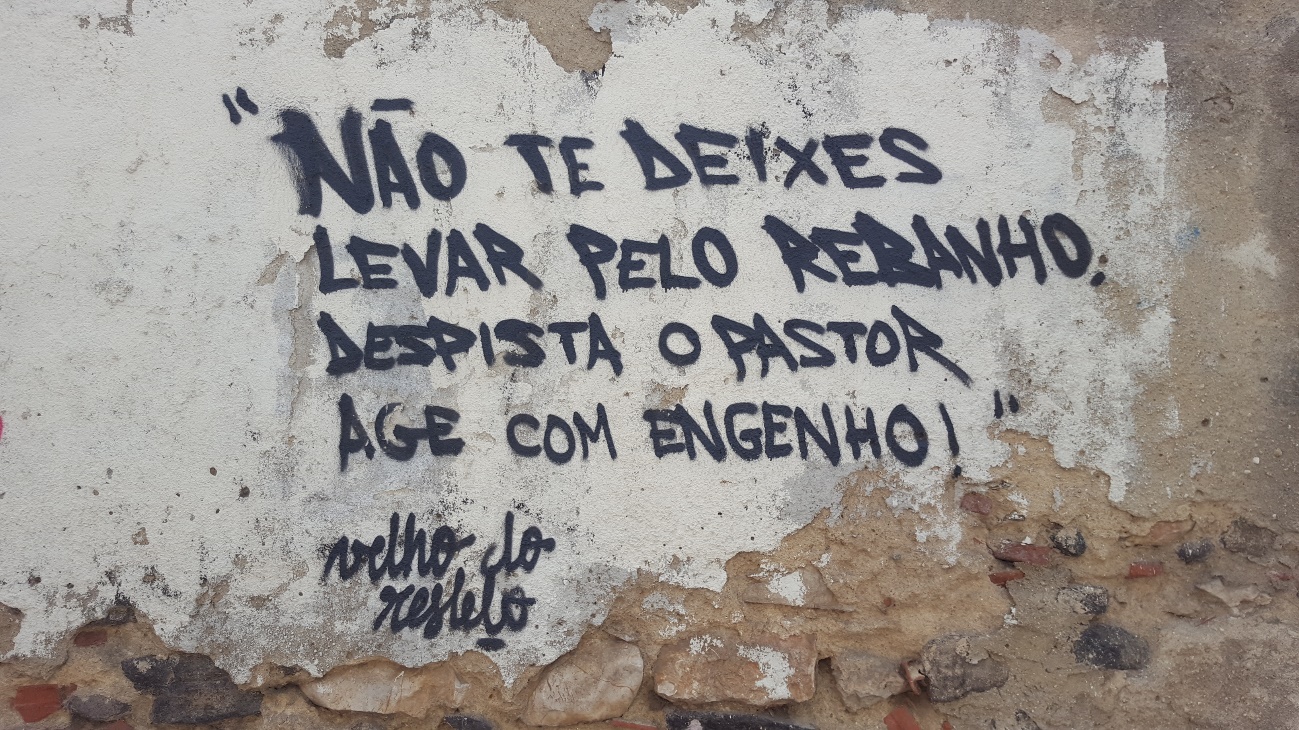 "NÃO TE DEIXES
LEVAR PELO REBANHO.
DESPISTA O PASTOR
AGE COM ENGENHO!"
velho do
restelo